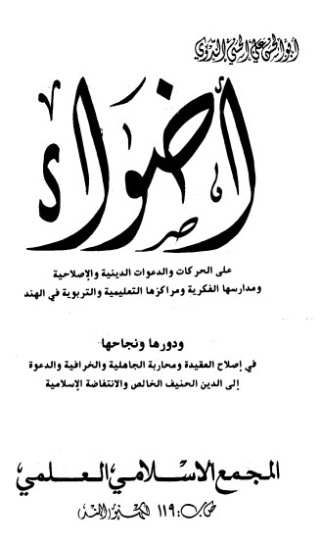 أبو الحسن علي الحسني الندوي
أضواء
على الحركات والدعوات الدينية والإصلاحية
ومدارسها الفكرية ومراكزها التعليمية والتربوية في الهند
ودورها ونجاحها
في إصلاح العقيدة ومحاربة الجاهلية والخرافية والدعوة
إلى الدين الحنيف الخالص والانتفاضة الإسلامية
المجمع الإسلامي العلمي
ص ب : ١١٩ لكهنؤ الهند